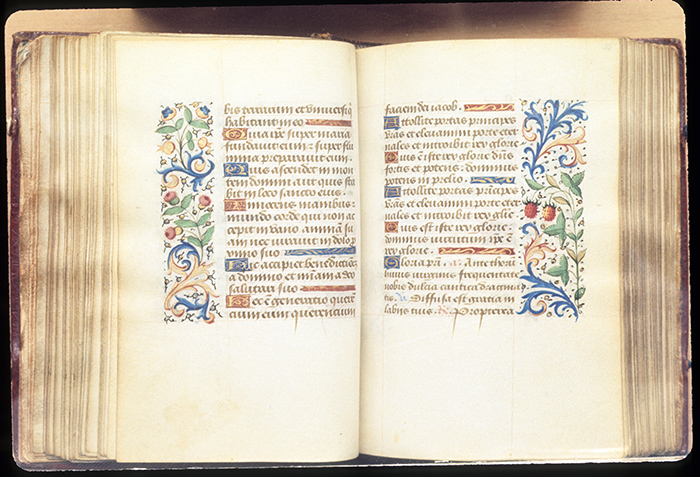 bis terrarum et universi q
habitant in eo
Quia ipe super maria
fundavit eum : super flu
mina preparavit eum.
Quis ascendet in mon
tem domini aut quis sta
bit in loco sancto eius.
Innocens manibus :
mundo corde qui non ac
cepit in vano animã su
am nec iuravit in dolo p
ximo suo
Hic accipiet benedictiõe
a domino et mĩam a deo
salutari suo
Hec ẽ generatio querẽ
cium eum querencium
faciem dei iacob.
Attollite portas principes
vras et elevamini porte eter
nales et introibit rex glorie
Quis est iste rex glorie dñs
fortis et potens : dominus
potens in prelio.
Attollite portas prĩcipes
vras et elevamini porte eter
nales et introibit rex glorie
Quis est iste rex glorie :
dominus virtutum ipe ẽ
rex glorie.
Gloria pri. añ. Ante thorũ
huius virginis frequentate
nobis dulcia cantica dramatis
tis. Diffusa est gratia in
labiis tuis. Propterea